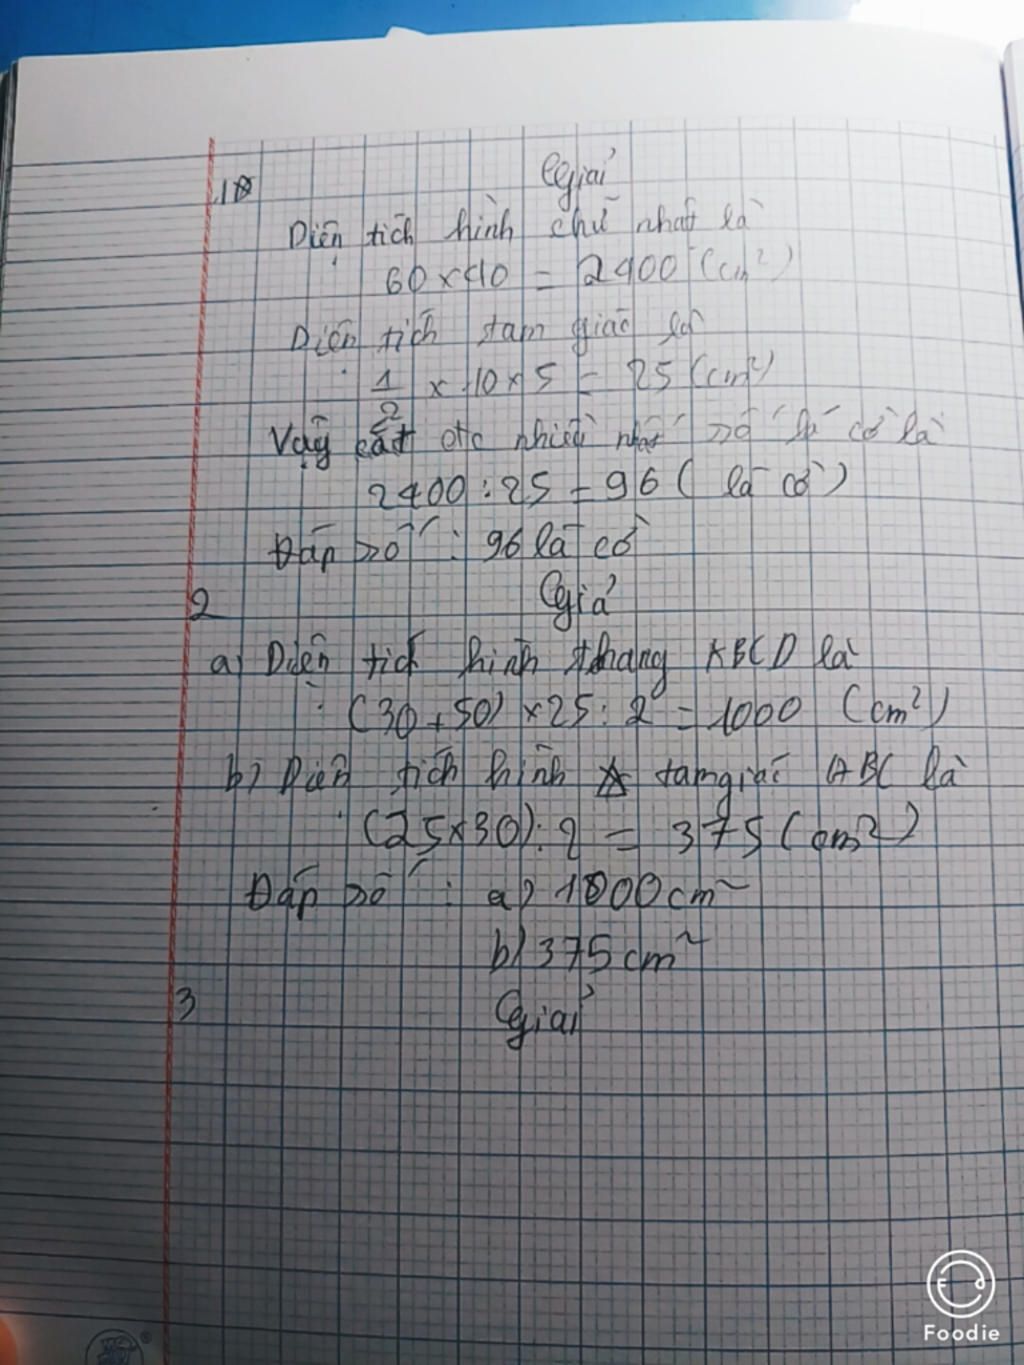 1
Giải
Diện tích hình chữ nhật là
60 x 40 = 2400 (cm²)
Diện tích tam giác là
1/2 x 10 x 5 = 25 (cm²)
Vậy cắt đtc nhiều nhất số lá cờ là
2400 : 25 = 96 ( lá cờ )
Đáp số : 96 lá cờ
2
Giả
a) Diện tích hình thang ABCD là
(30 + 50) x 25 : 2 = 1000 (cm²)
b) Diện tích hình tam giác ABC là
(25 x 30) : 2 = 375 (cm²)
Đáp số : a) 1000 cm²
b) 375 cm²
3
Giải
Foodie